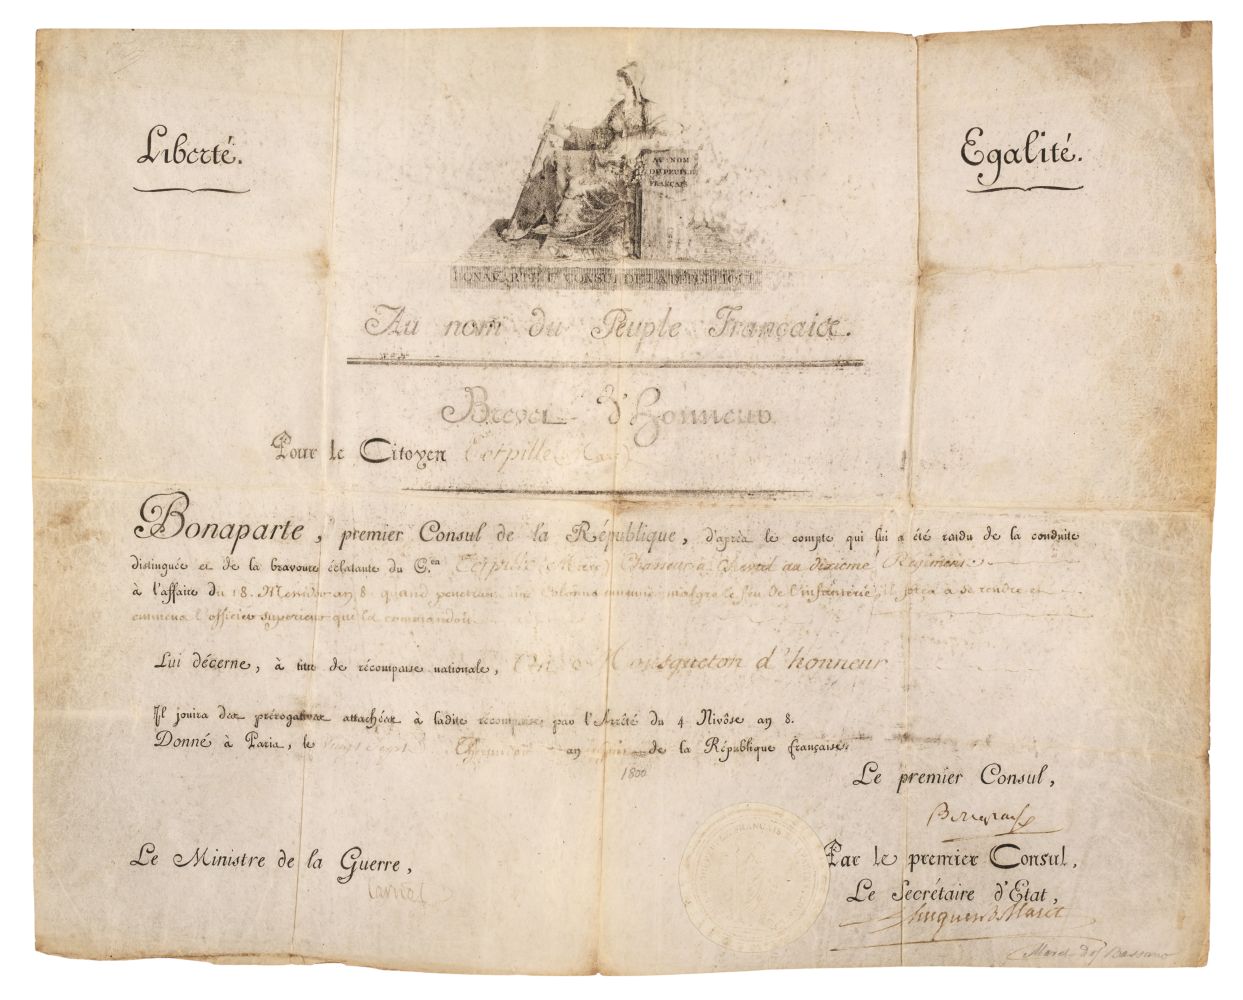 Liberté.
Egalité.
AU NOM
DU PEUPLE
FRANÇAIS
BONAPARTE 1er CONSUL DE LA RÉPUBLIQUE
Au nom du Peuple Français.
Brevet d'Honneur
Pour le Citoyen Torpille (Marc)
Bonaparte, premier Consul de la République, d'après le compte qui lui a été rendu de la conduite
distinguée et de la bravoure éclatante du C.en Torpille (Marc) Chasseur à Cheval au dixieme Régiment
à l'affaire du 18. Messidor an 8. quand penetrant une Colonne ennemie malgré le feu de l'infanterie, il força à se rendre et
emmena l'officier superieur qui la commandoit.
Lui décerne, à titre de récompense nationale, Un Mousqueton d'honneur
Il jouira des prérogatives attachées à ladite récompense par l'Arrêté du 4 Nivôse an 8.
Donné à Paris, le vingt Sept Thermidor an de la République française.
1800
Le premier Consul,
Bonaparte
Le Ministre de la Guerre,
Carnot
Par le premier Consul,
Le Secrétaire d'Etat,
Hugues B. Maret
Maret duc de Bassano